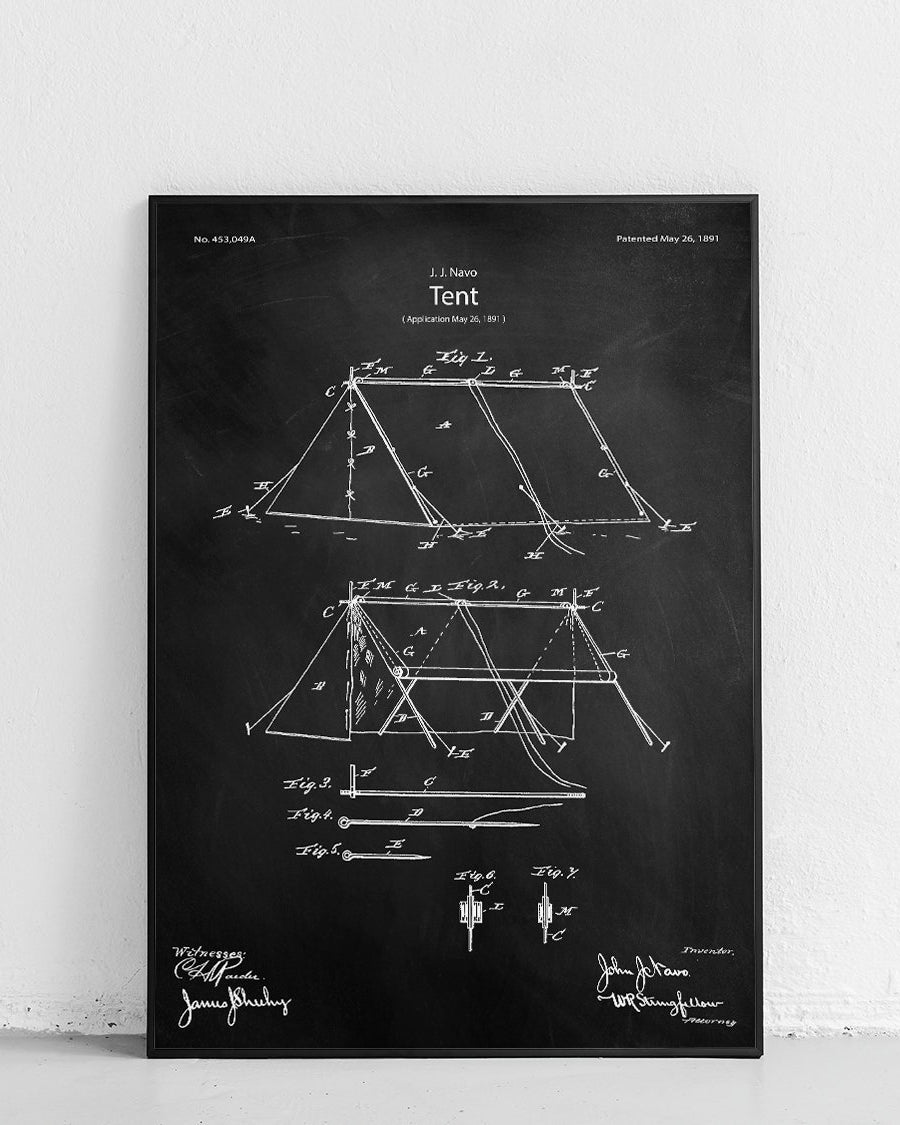 No. 453,049A
Patented May 26, 1891
J. J. Navo
Tent
( Application May 26, 1891 )
Fig 1.
F M G L G M F
C C
A
B G G
H
E E E
H H
Fig. 2.
F M G L G M F
C C
A
G G
B
D D
E
Fig. 3. F C
Fig. 4. D
Fig. 5. E
Fig. 6. Fig. 7.
C
L M
C
Witnesses:
Inventor.
John J. Navo.
James J. Sheehy
W.P. Stringfellow
Attorney